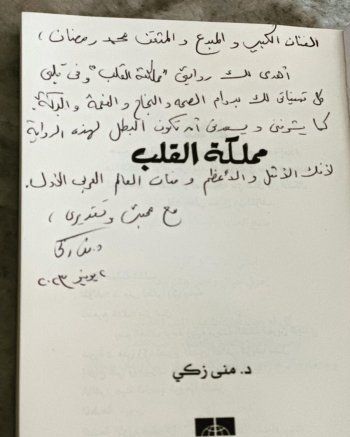 الفنان الكبير و المبدع و المثقف محمد رمضان ،
أهدى لك روايتى "مملكة القلب" وفى قلبى
كل تمنياتى لك بدوام الصحه والنجاح و النعمة والبركة.
كما يشرفنى و يسعدنى أن تكون البطل لهذه الرواية
مملكة القلب
لأنك الأمثل والأعظم و فنان العالم العربى الأول.
مع محبتى وتقديرى ،
د. منى زكى
٢ يونيو ٢٠٢٣
د. منى زكي